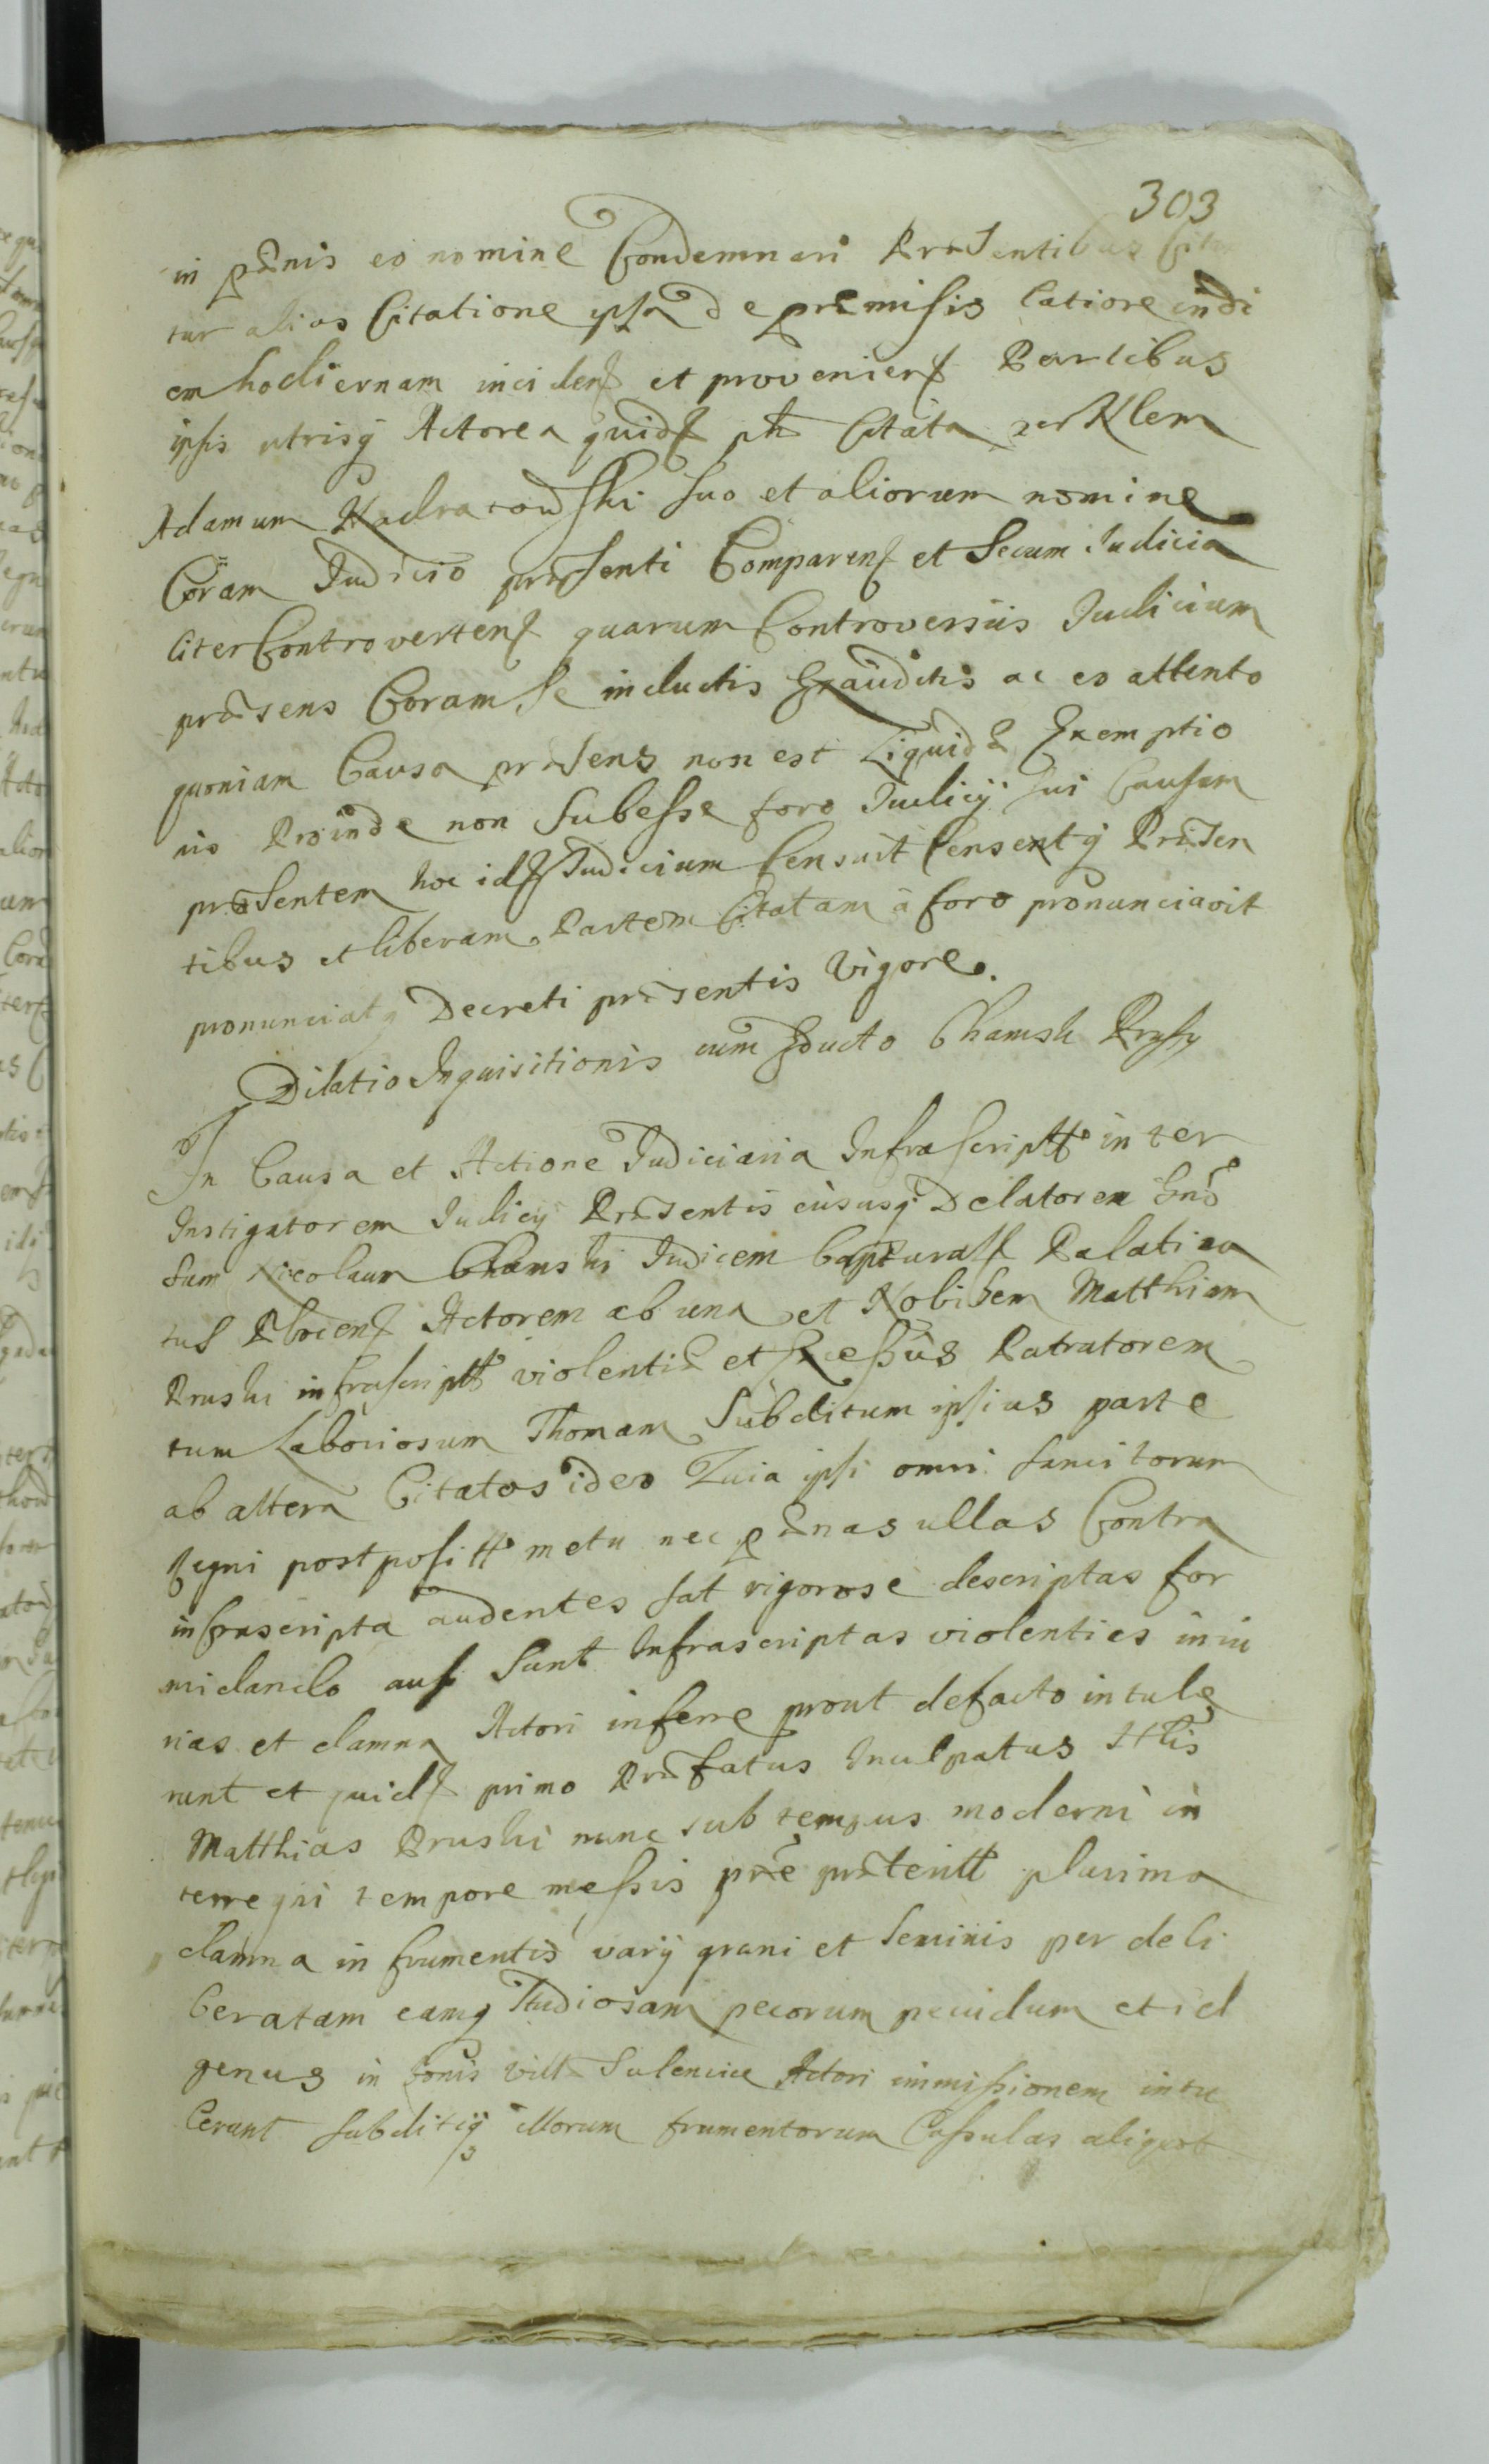 303
in pænis eo nomine Condemnari Præsentibus Cita
tur alias Citatione ipsa de præmissis latiore in di
em hodiernam inciden et provenien Partibus
ipsis utrisq Actorea quid Citata per Nlem
Adamum suo et aliorum nomine
Coram Judicio præsenti Comparen et Secum Judicia
liter Controverten quarum Controversiis Judicium
præsens Coram se inductis Exauditis ac eo attento
quoniam Causa præsens non est Liquidæ Exemptio
nis Proinde non Subesse foro Judicij sui Causam
præsentem hoc id Judicium Censuit Censentq Præsen
tibus et liberam Partem Citatam à foro pronunciavit
pronunciatq Decreti præsentis Vigore.
Dilatio Inquisitionis cum Educto Chamski Prusky
In Causa et Actione Judiciaria Infrascript inter
Instigatorem Judicij Præsentis eiususq Delatorem Gnõ
sum Nicolaum Chamski Judicem Capturall Palatina
tus Plocen Actorem ab una et Nobilem Matthiam
Pruski infrascript violentiæ et Excessus Patratorem
tum Laboriosum Thomam Subditum ipsius parte
ab altera Citatos ideo Quia ipsi omni sancitorum
Regni postposit metu nec pænas ullas Contra
infrascripta audentes sat rigorose descriptas for
midando ausi Sunt Infrascriptas violenties iniu
rias et damna Actori inferre prout defacto intule
runt et quid primo Præfatus Inculpatus Nlis
Matthias Pruski nunc sub tempus moderni in
terregni tempore messis præterit plurima
damna in frumentis varij grani et Seminis per deli
beratam eamq Studiosam pecorum pecudum et id
genus in bonis vill Sulencice Actori immissionem intu
lerunt subditiq illorum frumentorum Cassulas aliquot